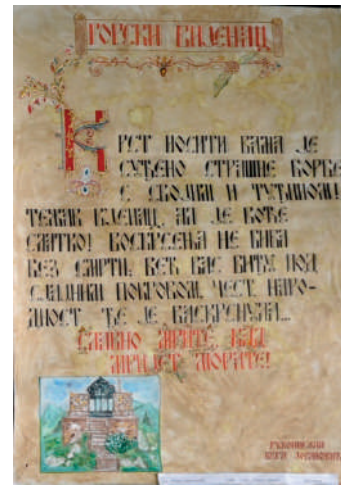 ГОРСКИ ВИЈЕНАЦ
КРСТ НОСИТИ ВАМА ЈЕ
СУЂЕНО СТРАШНЕ БОРБЕ
С СВОЈИМ И ТУЂИНОМ!
ТЕЖАК ВЈЕНАЦ, АЛ ЈЕ ВОЋЕ
СЛАТКО! ВОСКРСЕЊА НЕ БИВА
БЕЗ СМРТИ, ВЕЋ ВАС ВИЂУ ПОД
СЈАЈНИМ ПОКРОВОМ, ЧЕСТ, НАРО-
ДНОСТ ЂЕ ЈЕ ВАСКРСНУЛА...
СЛАВНО МРИТЕ, КАД
МРИЈЕТ МОРАТЕ!